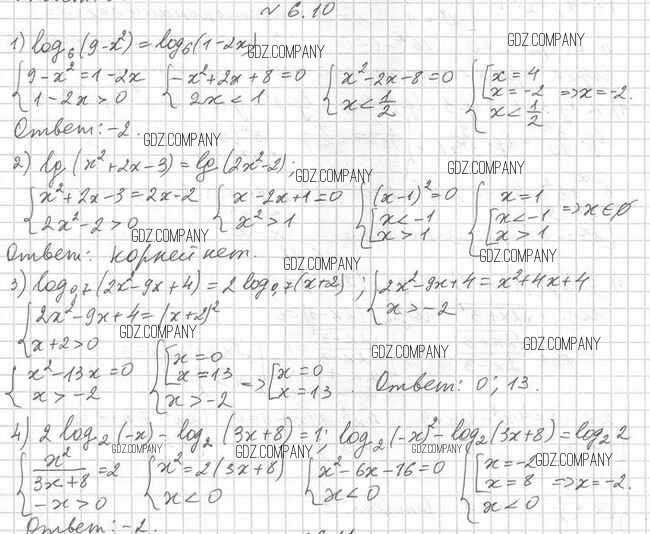 № 6.10
1) log₆(9-x²) = log₆(1-2x)
GDZ.COMPANY
GDZ.COMPANY
{ 9-x² = 1-2x { -x²+2x+8=0 { x²-2x-8=0 { [ x=4
1-2x>0 2x<1 x<1/2 x=-2 => x=-2.
x<1/2
Ответ: -2.
GDZ.COMPANY
2) lg(x²+2x-3) = lg(2x²-2);
GDZ.COMPANY
GDZ.COMPANY
{ x²+2x-3=2x-2 { x-2x+1=0 { (x-1)²=0 { x=1
2x²-2>0 x²>1 [ x<-1 [ x<-1 => x∈∅
x>1 x>1
GDZ.COMPANY
Ответ: корней нет.
GDZ.COMPANY
GDZ.COMPANY
3) log₀,₇(2x²-9x+4) = 2 log₀,₇(x+2); { 2x²-9x+4=x²+4x+4
{ 2x²-9x+4=(x+2)² x>-2
x+2>0
GDZ.COMPANY
GDZ.COMPANY
GDZ.COMPANY
{ x²-13x=0 { [ x=0 => [ x=0
x>-2 x=13 x=13. Ответ: 0; 13.
x>-2
4) 2 log₂(-x) - log₂(3x+8) = 1; log₂(-x)² - log₂(3x+8) = log₂2
GDZ.COMPANY
GDZ.COMPANY
GDZ.COMPANY
GDZ.COMPANY
{ x²/(3x+8) = 2 { x²=2(3x+8) { x²-6x-16=0 { [ x=-2
-x>0 x<0 x<0 x=8 => x=-2.
x<0
Ответ: -2.